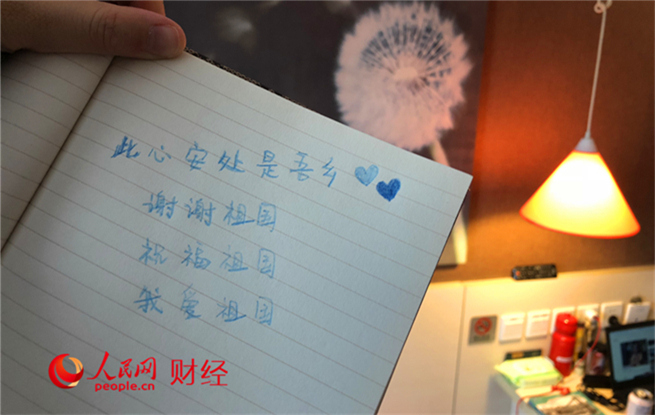 此心安处是吾乡
谢谢祖国
祝福祖国
我爱祖国
人民网 财经
people.cn